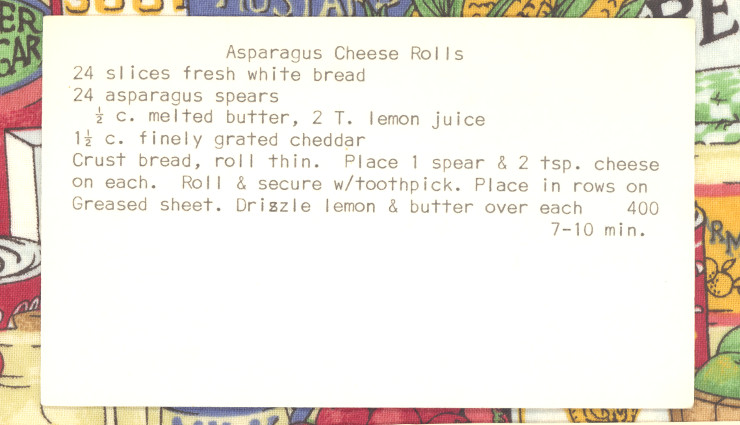 Asparagus Cheese Rolls
24 slices fresh white bread
24 asparagus spears
½ c. melted butter, 2 T. lemon juice
1½ c. finely grated cheddar
Crust bread, roll thin. Place 1 spear & 2 tsp. cheese
on each. Roll & secure w/toothpick. Place in rows on
Greased sheet. Drizzle lemon & butter over each 400
7-10 min.